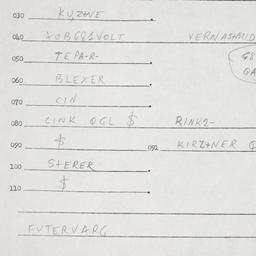 030 KUZTNE
040 XOBGQ1VOLT VERNASHMID
050 TEPA-R-
060 BLEXER
070 CIN
080 CINK OGL $ RINK2-
090 $ 091 KIRZTNER
100 STERER
110 $
FUTERVARG